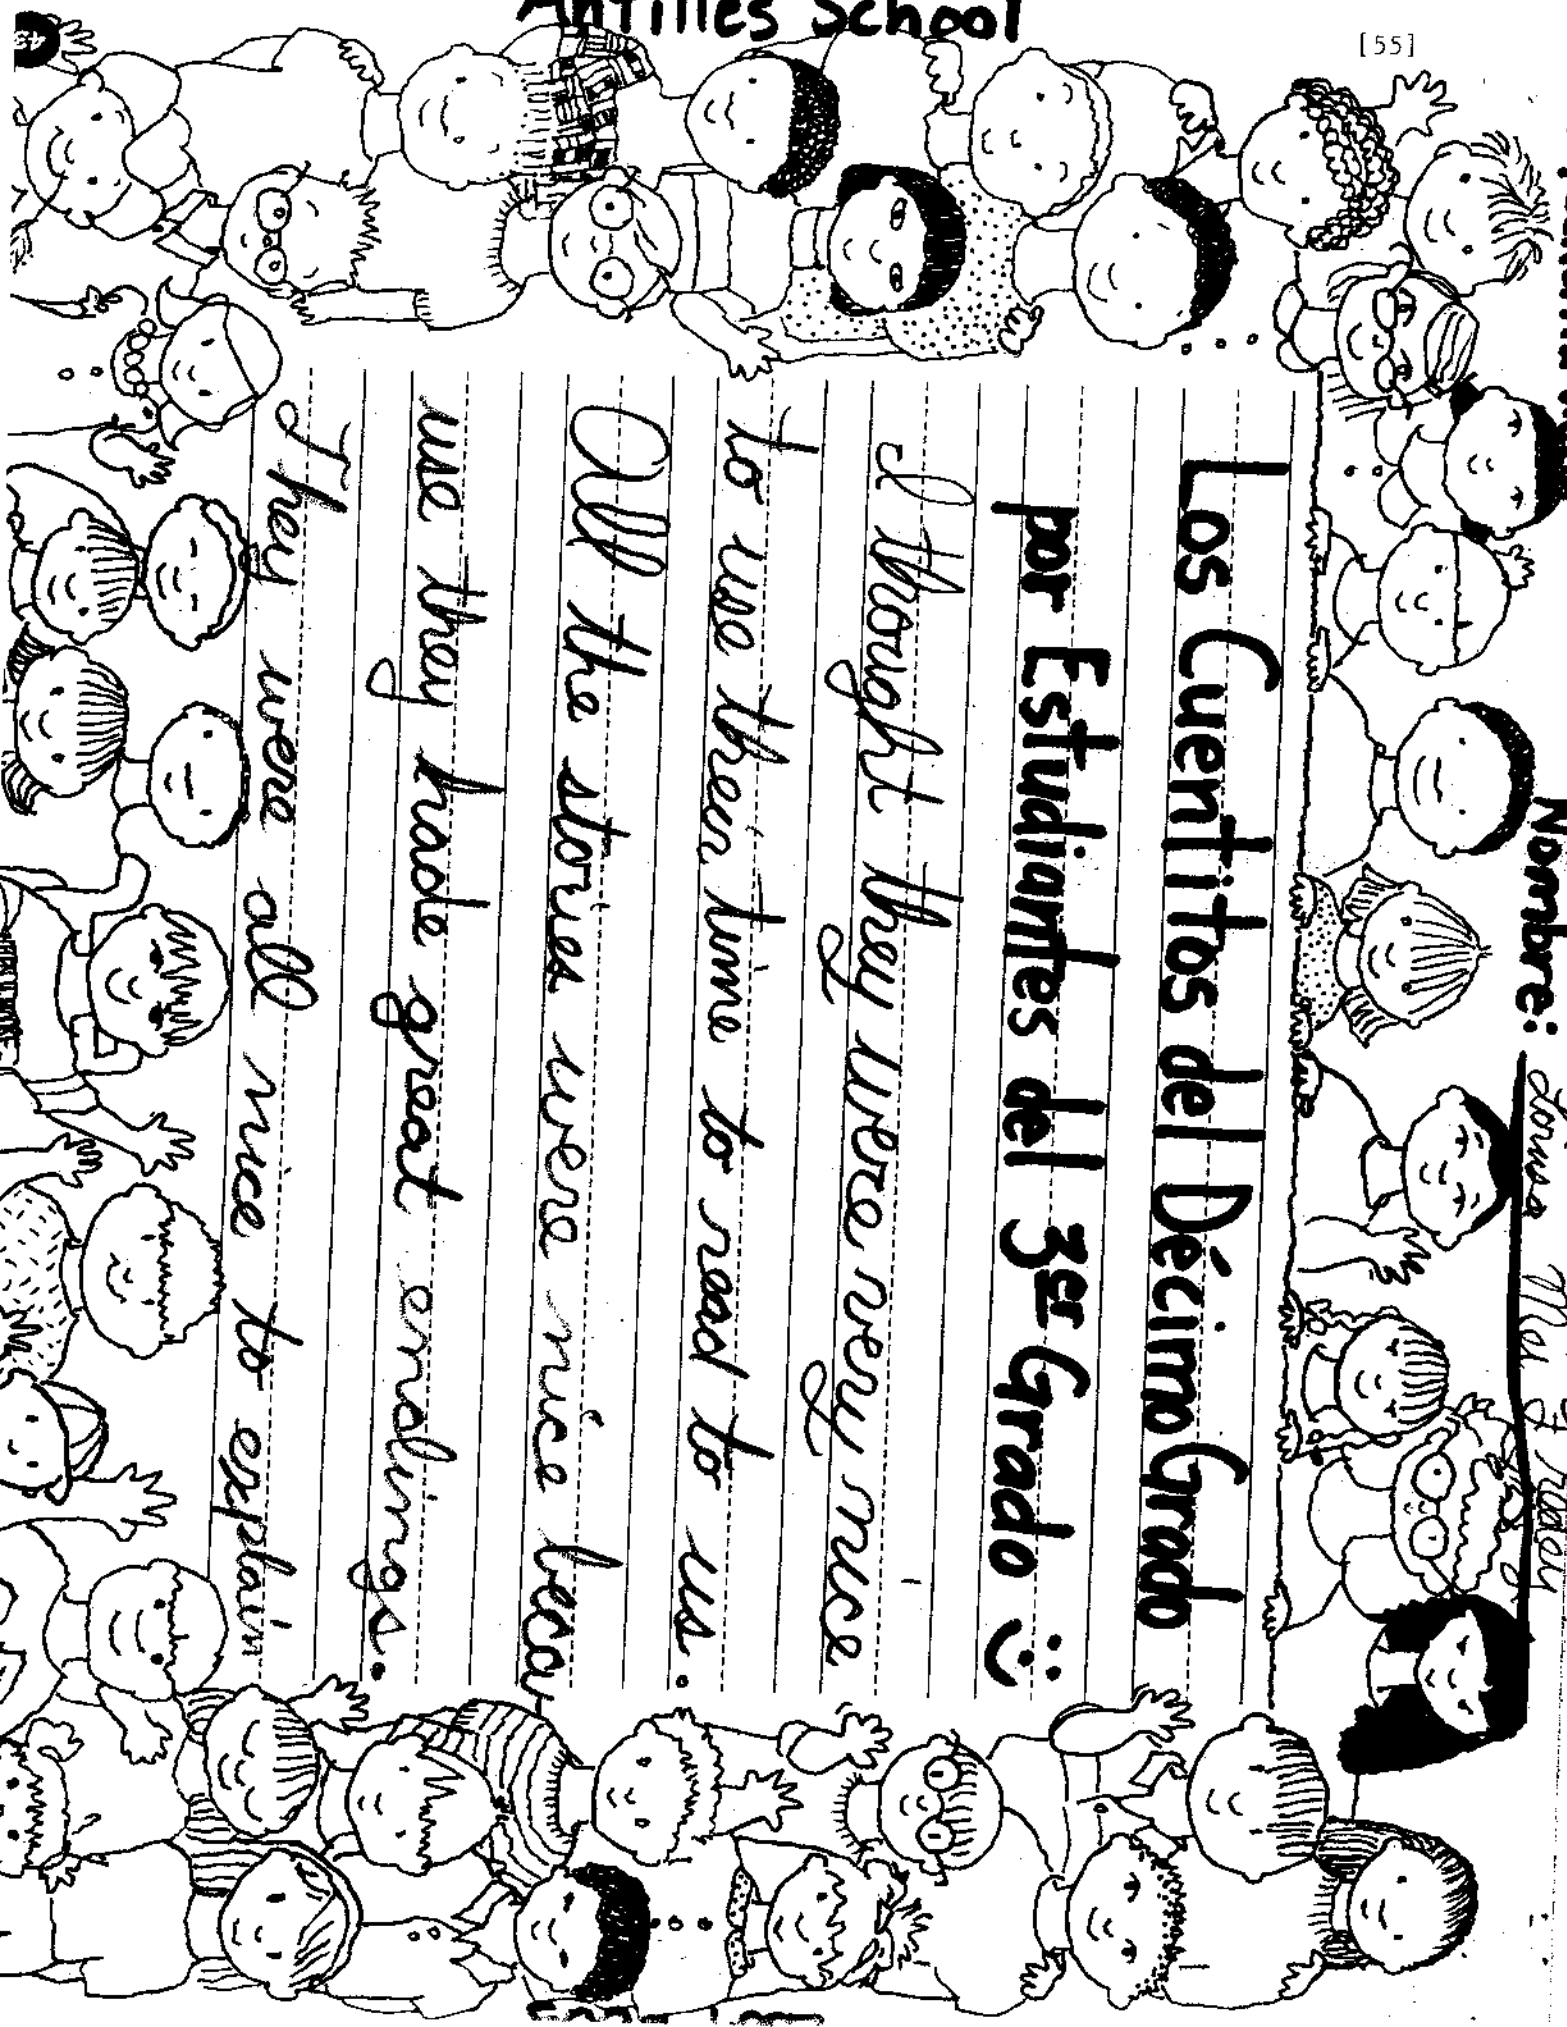 Antilles School
[55]
43
Nombre:
Los Cuentitos del Décimo Grado
por Estudiantes del 3er Grado
I thought they were very nice
to use their time to read to us.
All the stories were nice beca
use they hade great endings.
They were all nice to explain